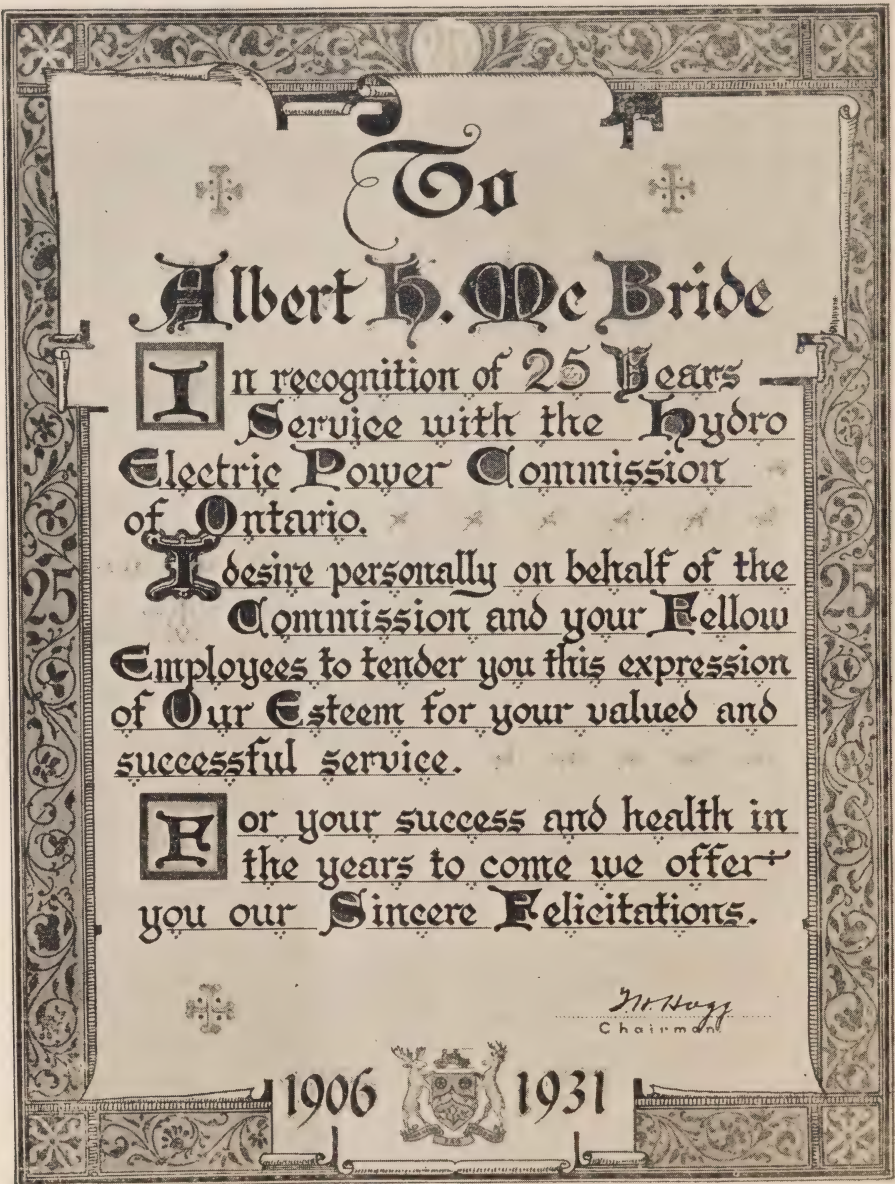 To
Albert H. Mc Bride
In recognition of 25 Years
Service with the Hydro
Electric Power Commission
of Ontario.
I desire personally on behalf of the
Commission and your Fellow
25 25
Employees to tender you this expression
of Our Esteem for your valued and
successful service.
For your success and health in
the years to come we offer
you our Sincere Felicitations.
Hogg
Chairman
1906 1931